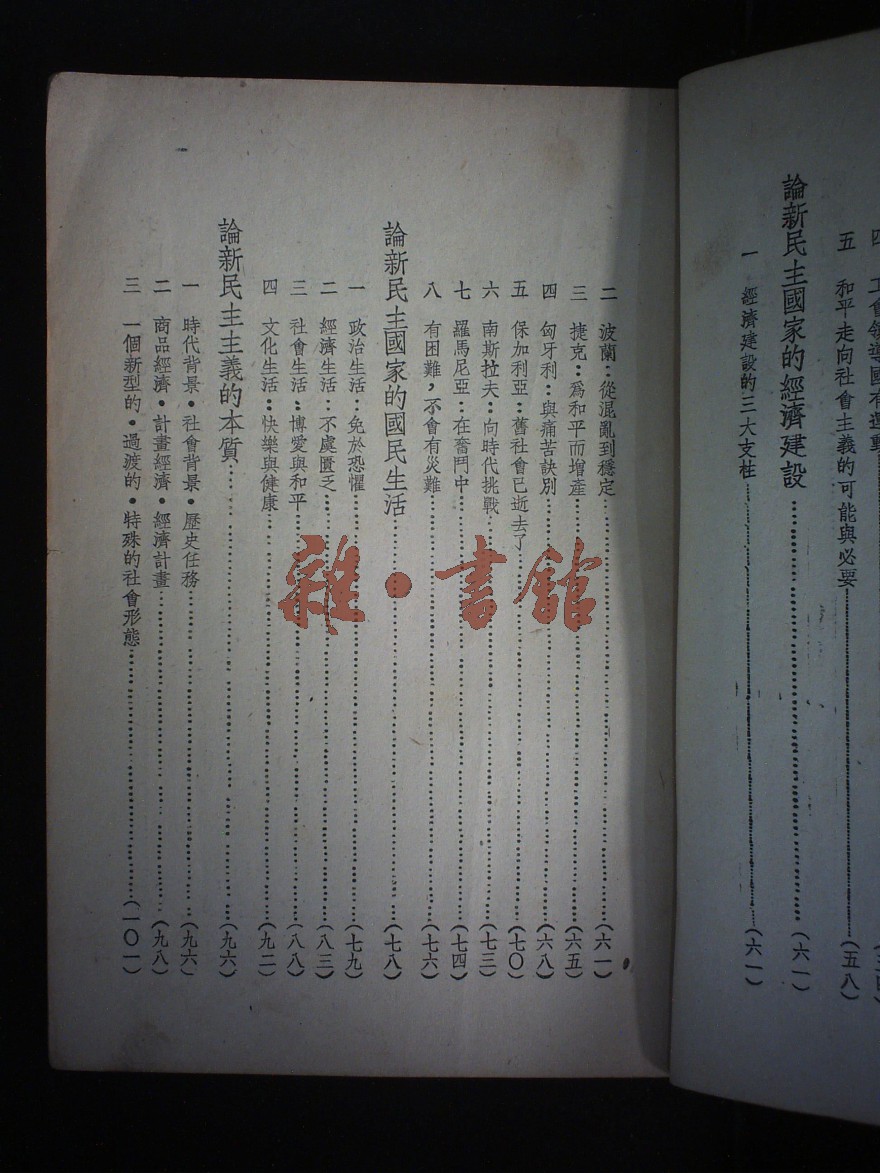 四　工會領導國有運動
五　和平走向社會主義的可能與必要……(五八)
論新民主國家的經濟建設……(六一)
一　經濟建設的三大支柱……(六一)
二　波蘭：從混亂到穩定……(六一)
三　捷克：爲和平而增產……(六五)
四　匈牙利：與痛苦訣別……(六八)
五　保加利亞：舊社會已逝去了……(七〇)
六　南斯拉夫：向時代挑戰……(七三)
七　羅馬尼亞：在奮鬥中……(七四)
八　有困難，不會有災難……(七六)
論新民主國家的國民生活……(七八)
一　政治生活：免於恐懼……(七九)
二　經濟生活：不虞匱乏……(八三)
三　社會生活：博愛與和平……(八八)
四　文化生活：快樂與健康……(九二)
論新民主主義的本質……(九六)
一　時代背景•社會背景•歷史任務……(九六)
二　商品經濟•計畫經濟•經濟計畫……(九八)
三　一個新型的•過渡的•特殊的社會形態……(一〇一)
雜•書館